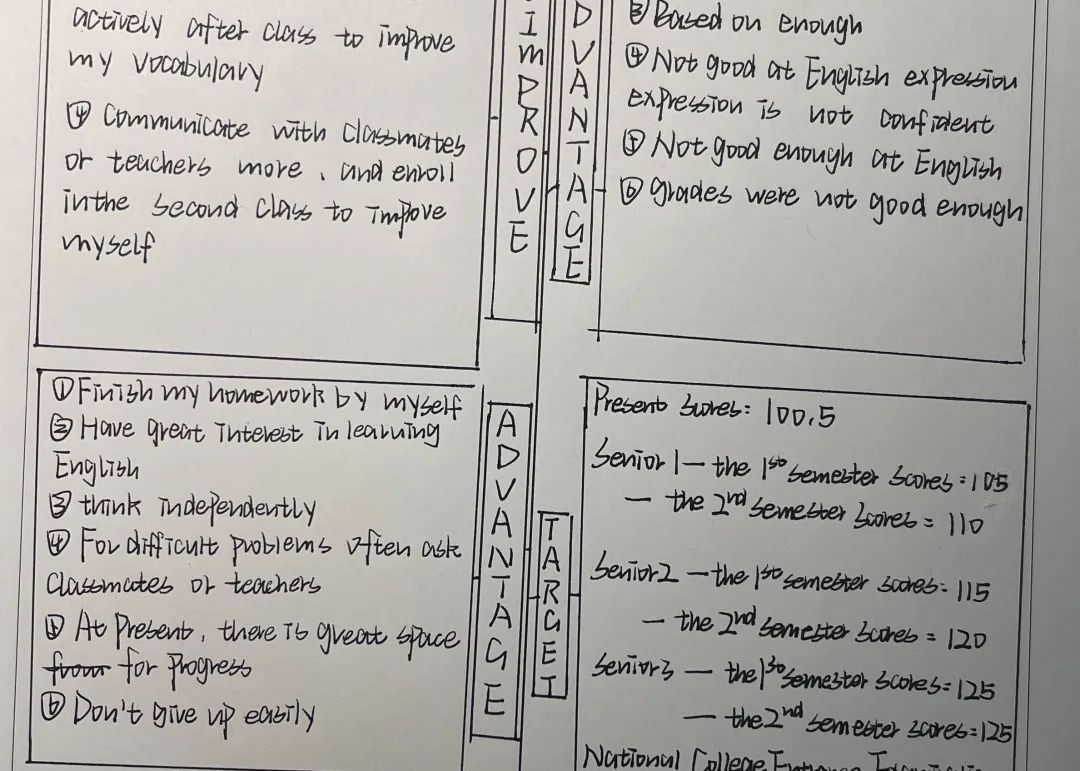 actively after class to improve
my vocabulary
④ Communicate with classmates
or teachers more, and enroll
in the second class to improve
myself
IMPROVE
DVANTAGE
③ Based on enough
④ Not good at English expression
expression is not confident
⑤ Not good enough at English
⑥ grades were not good enough
① Finish my homework by myself
② Have great interest in learning
English
③ think independently
④ For difficult problems often ask
classmates or teachers
⑤ At present, there is great space
for progress
⑥ Don't give up easily
ADVANTAGE
TARGET
Present scores: 100.5
Senior 1 — the 1st semester scores: 105
— the 2nd semester scores = 110
Senior 2 — the 1st semester scores: 115
— the 2nd semester scores = 120
Senior 3 — the 1st semester scores = 125
— the 2nd semester scores: 125
National College Entrance Examination